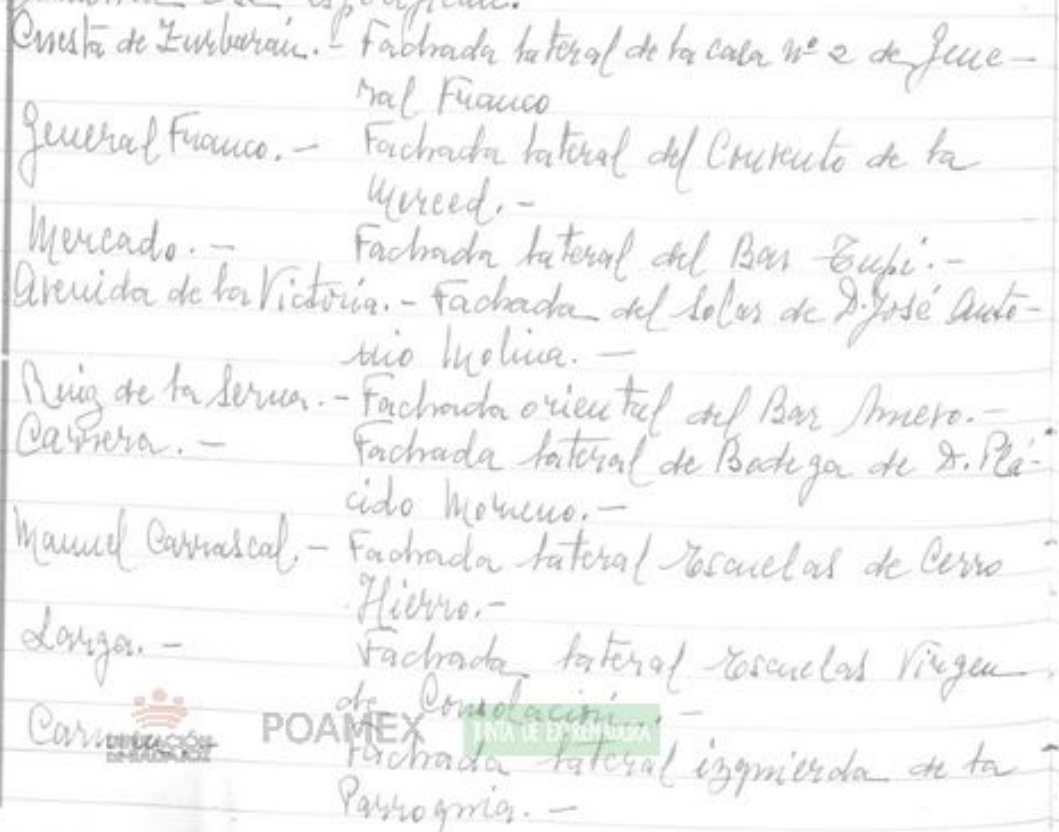 Cuesta de Zurbarán.- Fachada lateral de la casa nº 2 de Gene-
ral Franco
General Franco.- Fachada lateral del Convento de la
Merced.-
Mercado.- Fachada lateral del Bar Tupi.-
Avenida de la Victoria.- Fachada del solar de D. José Anto-
nio Molina.-
Ruiz de la Serna.- Fachada oriental del Bar
Carrera.- Fachada lateral de Bodega de D. Plá-
cido Moreno.-
Manuel Carrascal.- Fachada lateral Escuelas de Cerro
Hierro.-
Larga.- Fachada lateral Escuelas Virgen
de Consolación.-
Fachada lateral izquierda de la
Parroquia.-
DIPUTACIÓN
DE BADAJOZ
POAMEX
JUNTA DE EXTREMADURA